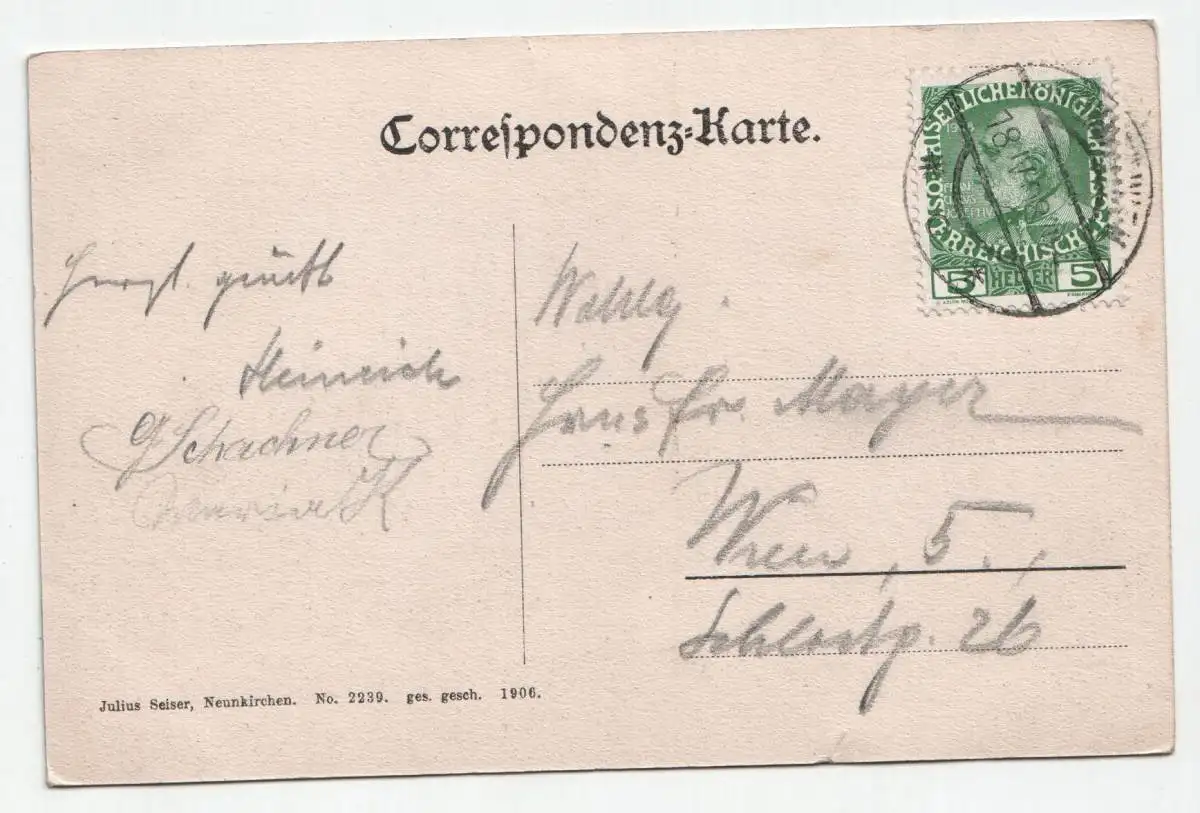 Correſpondenz-Karte.
K.K. ÖSTERREICHISCHE POST
KAISERLICHE KÖNIGLICHE
1908
5 HELLER 5
18
Herzl. grüßt
Heinrich
G Schachner
Wohlg.
Hans Fr. Mayer
Wien, 5.,
Schloßg. 26
Julius Seiser, Neunkirchen. No. 2239. ges. gesch. 1906.